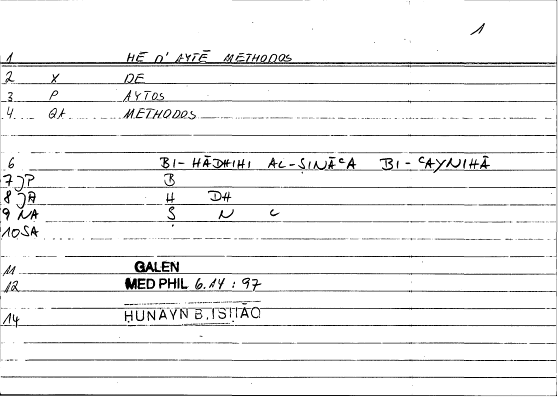 1
1 HE D' AYTĒ METHODOS
2 X DE
3 P AYTOS
4 QA METHODOS
6 BI-HĀDHIHI AL-ṢINĀʿA BI-ʿAYNIHĀ
7 JP B
8 JA H DH
9 NA Ṣ N ʿ
10 SA
11 GALEN
12 MED PHIL 6.14 : 97
14 ḤUNAYN B. ISḤĀQ